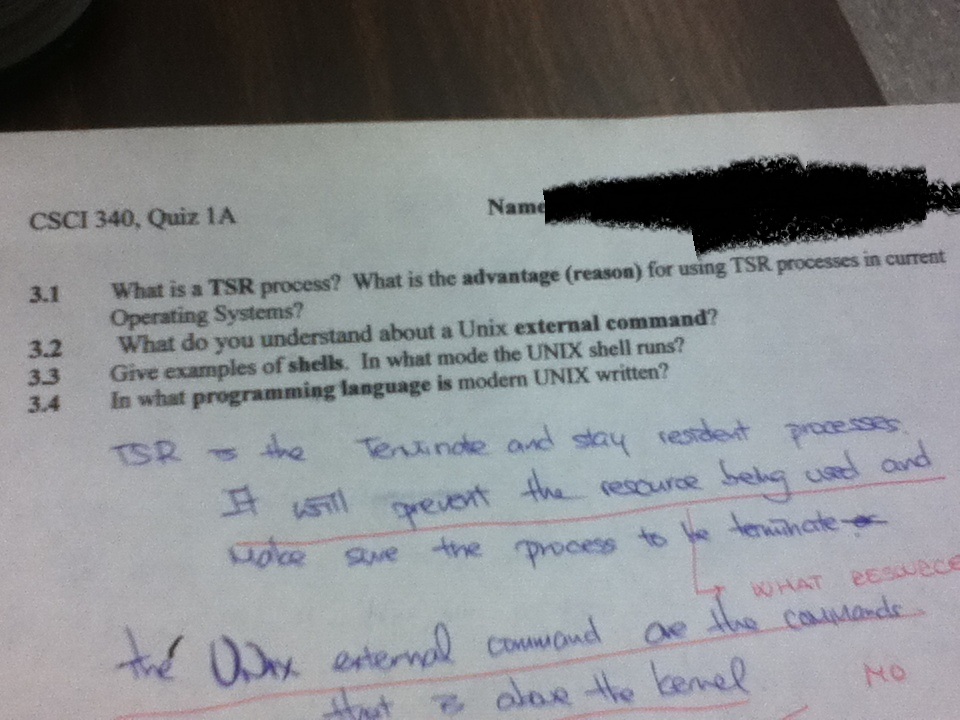 CSCI 340, Quiz 1A
Name
3.1 What is a TSR process? What is the advantage (reason) for using TSR processes in current
Operating Systems?
3.2 What do you understand about a Unix external command?
3.3 Give examples of shells. In what mode the UNIX shell runs?
3.4 In what programming language is modern UNIX written?
TSR is the Terminate and stay resident processes.
It will prevent the resource being used and
Make sure the process to be terminate
WHAT RESOURCE
the Unix external command are the commands
that is above the kernel
NO